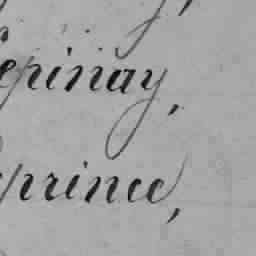 Lepinay,
Leprince,